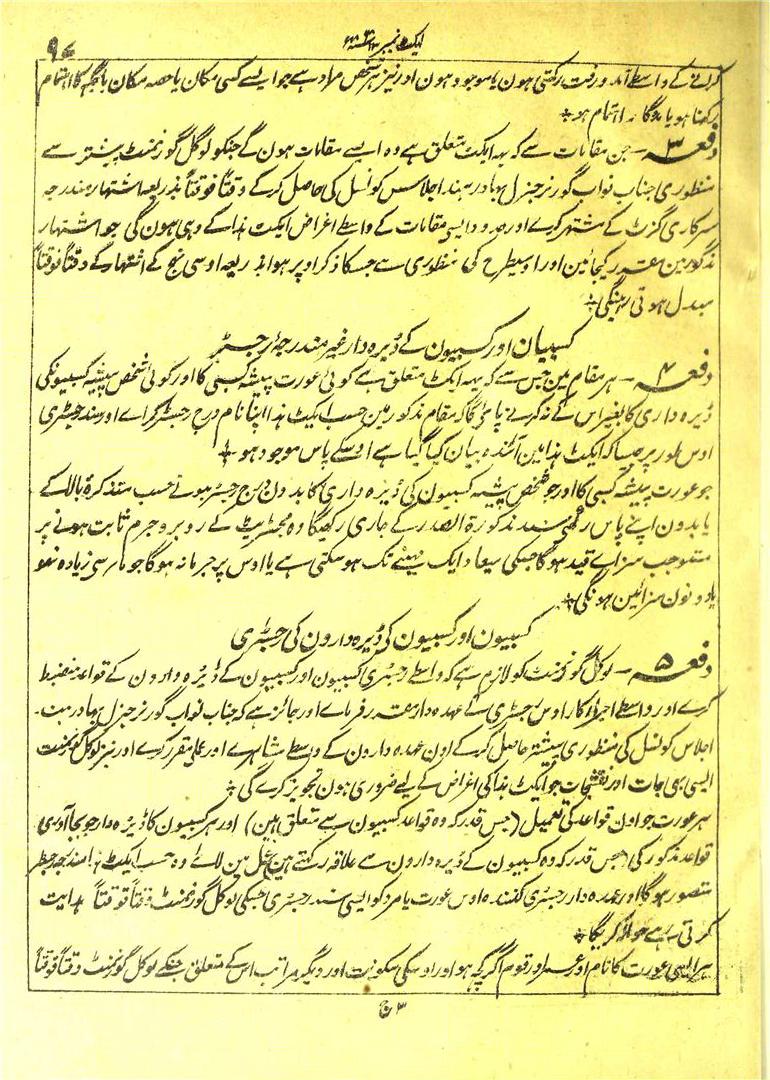 ایکٹ نمبر ۱۴ سنہ
۹۷
کرانے کے واسطے آمد و رفت رکھتی ہون یا موجود ہون اور نیز ہر شخص مراد ہے جو ایسے کسی مکان یا حصہ مکان یا جگہ کا اہتمام
رکھتا ہو یا اہتمام ہو
دفعہ ۳ — جن مقامات سے کہ یہہ ایکٹ متعلق ہے وہ ایسے مقامات ہون گے جنکو لوکل گورنمنٹ پیشتر سے
منظوری جناب نواب گورنر جنرل بہادر ہند اجلاس کونسل کی حاصل کرکے وقتاً فوقتاً بذریعہ اشتہار مندرجہ
سرکاری گزٹ کے مشتہر کرے اور حدود ایسی مقامات کے واسطے اغراض ایکٹ ہذا کے وہی ہون گی جو اشتہار
مذکور مین مقرر کیجائین اور اوسیطرح کی منظوری سے جسکا ذکر اوپر ہوا بذریعہ اوسی نہج کے اشتہار کے وقتاً فوقتاً
مبدل ہوتی رہینگی
کسبیان اور کسبیون کے ڈیرہ دار غیر مندرجۂ رجسٹر
دفعہ ۴ — ہر مقام مین جس سے کہ یہہ ایکٹ متعلق ہے کوئی عورت پیشہ کسبی کا اور کوئی شخص پیشہ کسبیونکی
ڈیرہ داری کا بغیر اس کے نہ کرنے پائیگا کہ مقام مذکور مین حسب ایکٹ ہذا اپنا نام درج رجسٹر کراے اور سند رجسٹری
اوس طور پر جیسا کہ ایکٹ ہذا مین آئندہ بیان کیا گیا ہے اوسکے پاس موجود ہو
جو عورت پیشہ کسبی کا اور جو شخص پیشہ کسبیون کی ڈیرہ داری کا بدون درج رجسٹر ہونے حسب متذکرۂ بالا کے
یا بدون اپنے پاس رکھنے سند مذکورۃ الصدر کے جاری رکھیگا وہ مجسٹریٹ کے روبرو جرم ثابت ہونے پر
مستوجب سزاے قید ہوگا جسکی میعاد ایک مہینے تک ہو سکتی ہے یا اوس پر جرمانہ ہوگا جو سی زیادہ نہو
یا دونون سزائین ہونگی
کسبیون اور کسبیون کی ڈیرہ دارون کی رجسٹری
دفعہ ۵ — لوکل گورنمنٹ کو لازم ہے کہ واسطے رجسٹری کسبیون اور کسبیون کے ڈیرہ دارون کے قواعد منضبط
کرے اور واسطے اجرا کار اوس رجسٹری کے عہدہ دار مقرر فرماے اور جائز ہے کہ جناب نواب گورنر جنرل بہادر ہند
اجلاس کونسل کی منظوری پیشتر حاصل کرکے اون عہدہ دارون کے واسطے مشاہرے اور عملے مقرر کرے اور نیز لوکل گورنمنٹ
ایسی بہی جات اور نقشجات جو ایکٹ ہذا کی اغراض کے لیے ضروری ہون تجویز کرے گی
ہر عورت جو اون قواعد کی تعمیل (جس قدر کہ وہ قواعد کسبیون سے متعلق ہین) اور ہر کسبیون کا ڈیرہ دار جو بجا آوری
قواعد مذکور کی (جس قدر کہ وہ کسبیون کے ڈیرہ دارون سے علاقہ رکھتے ہین) عمل مین لائے وہ حسب ایکٹ ہذا مندرجہ رجسٹر
متصور ہوگا اور عہدہ دار رجسٹری کنندہ اوس عورت یا مرد کو ایسی سند رجسٹری جسکی لوکل گورنمنٹ وقتاً فوقتاً ہدایت
کرتی رہے حوالہ کریگا
ہر ایسی عورت کا نام اور عمر اور قوم اگر کچھ ہو اور اوسکی سکونت اور دیگر مراتب اس کے متعلق جنکے لوکل گورنمنٹ وقتاً فوقتاً